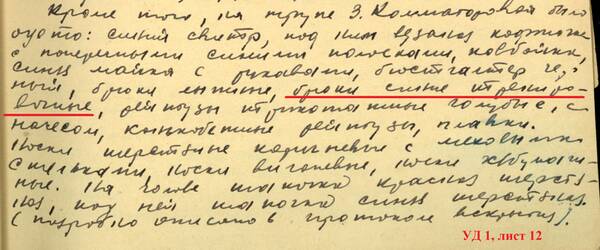 Кроме того, на трупе З. Колмагоровой было
одето: синий свитр, под ним вязаная кофточка
с поперечными синими полосками, ковбойка,
синяя майка с рукавами, бюстгалтер чер-
ный, брюки лыжные, брюки синие трениро-
вочные, рейтузы трикотажные голубые, с
начесом, рейтузы, плавки.
Носки шерстяные коричневые с меховыми
стельками, носки вигоневые, носки х/бумаж-
ные. На голове шапочка красная шерстя-
ная, под ней шапочка синяя шерстяная.
(подробно описано в протоколе вскрытия).
УД 1, лист 12